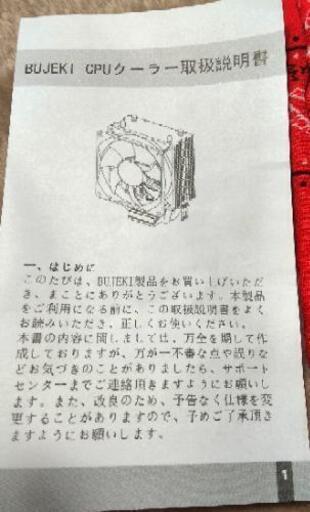 BUJEKI CPUクーラー取扱説明書
一、はじめに
このたびは、BUJEKI製品をお買い上げいただ
き、まことにありがとうございます。本製品
をご利用になる前に、この取扱説明書をよく
お読みいただき、正しくお使いください。
本書の内容に関しましては、万全を期して作
成しておりますが、万が一不審な点や誤りな
どお気づきのことがありましたら、サポート
センターまでご連絡頂きますようにお願いし
ます。また、改良のため、予告なく仕様を変
更することがありますので、予めご了承頂き
ますようにお願いします。
1